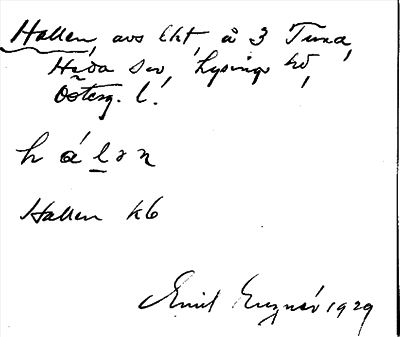 Hallen, avs Eht, å 3 Tuna,
Heda sn, Lysings hd,
Österg. l.
h á l ə n
Hallen kb
Emil 1929